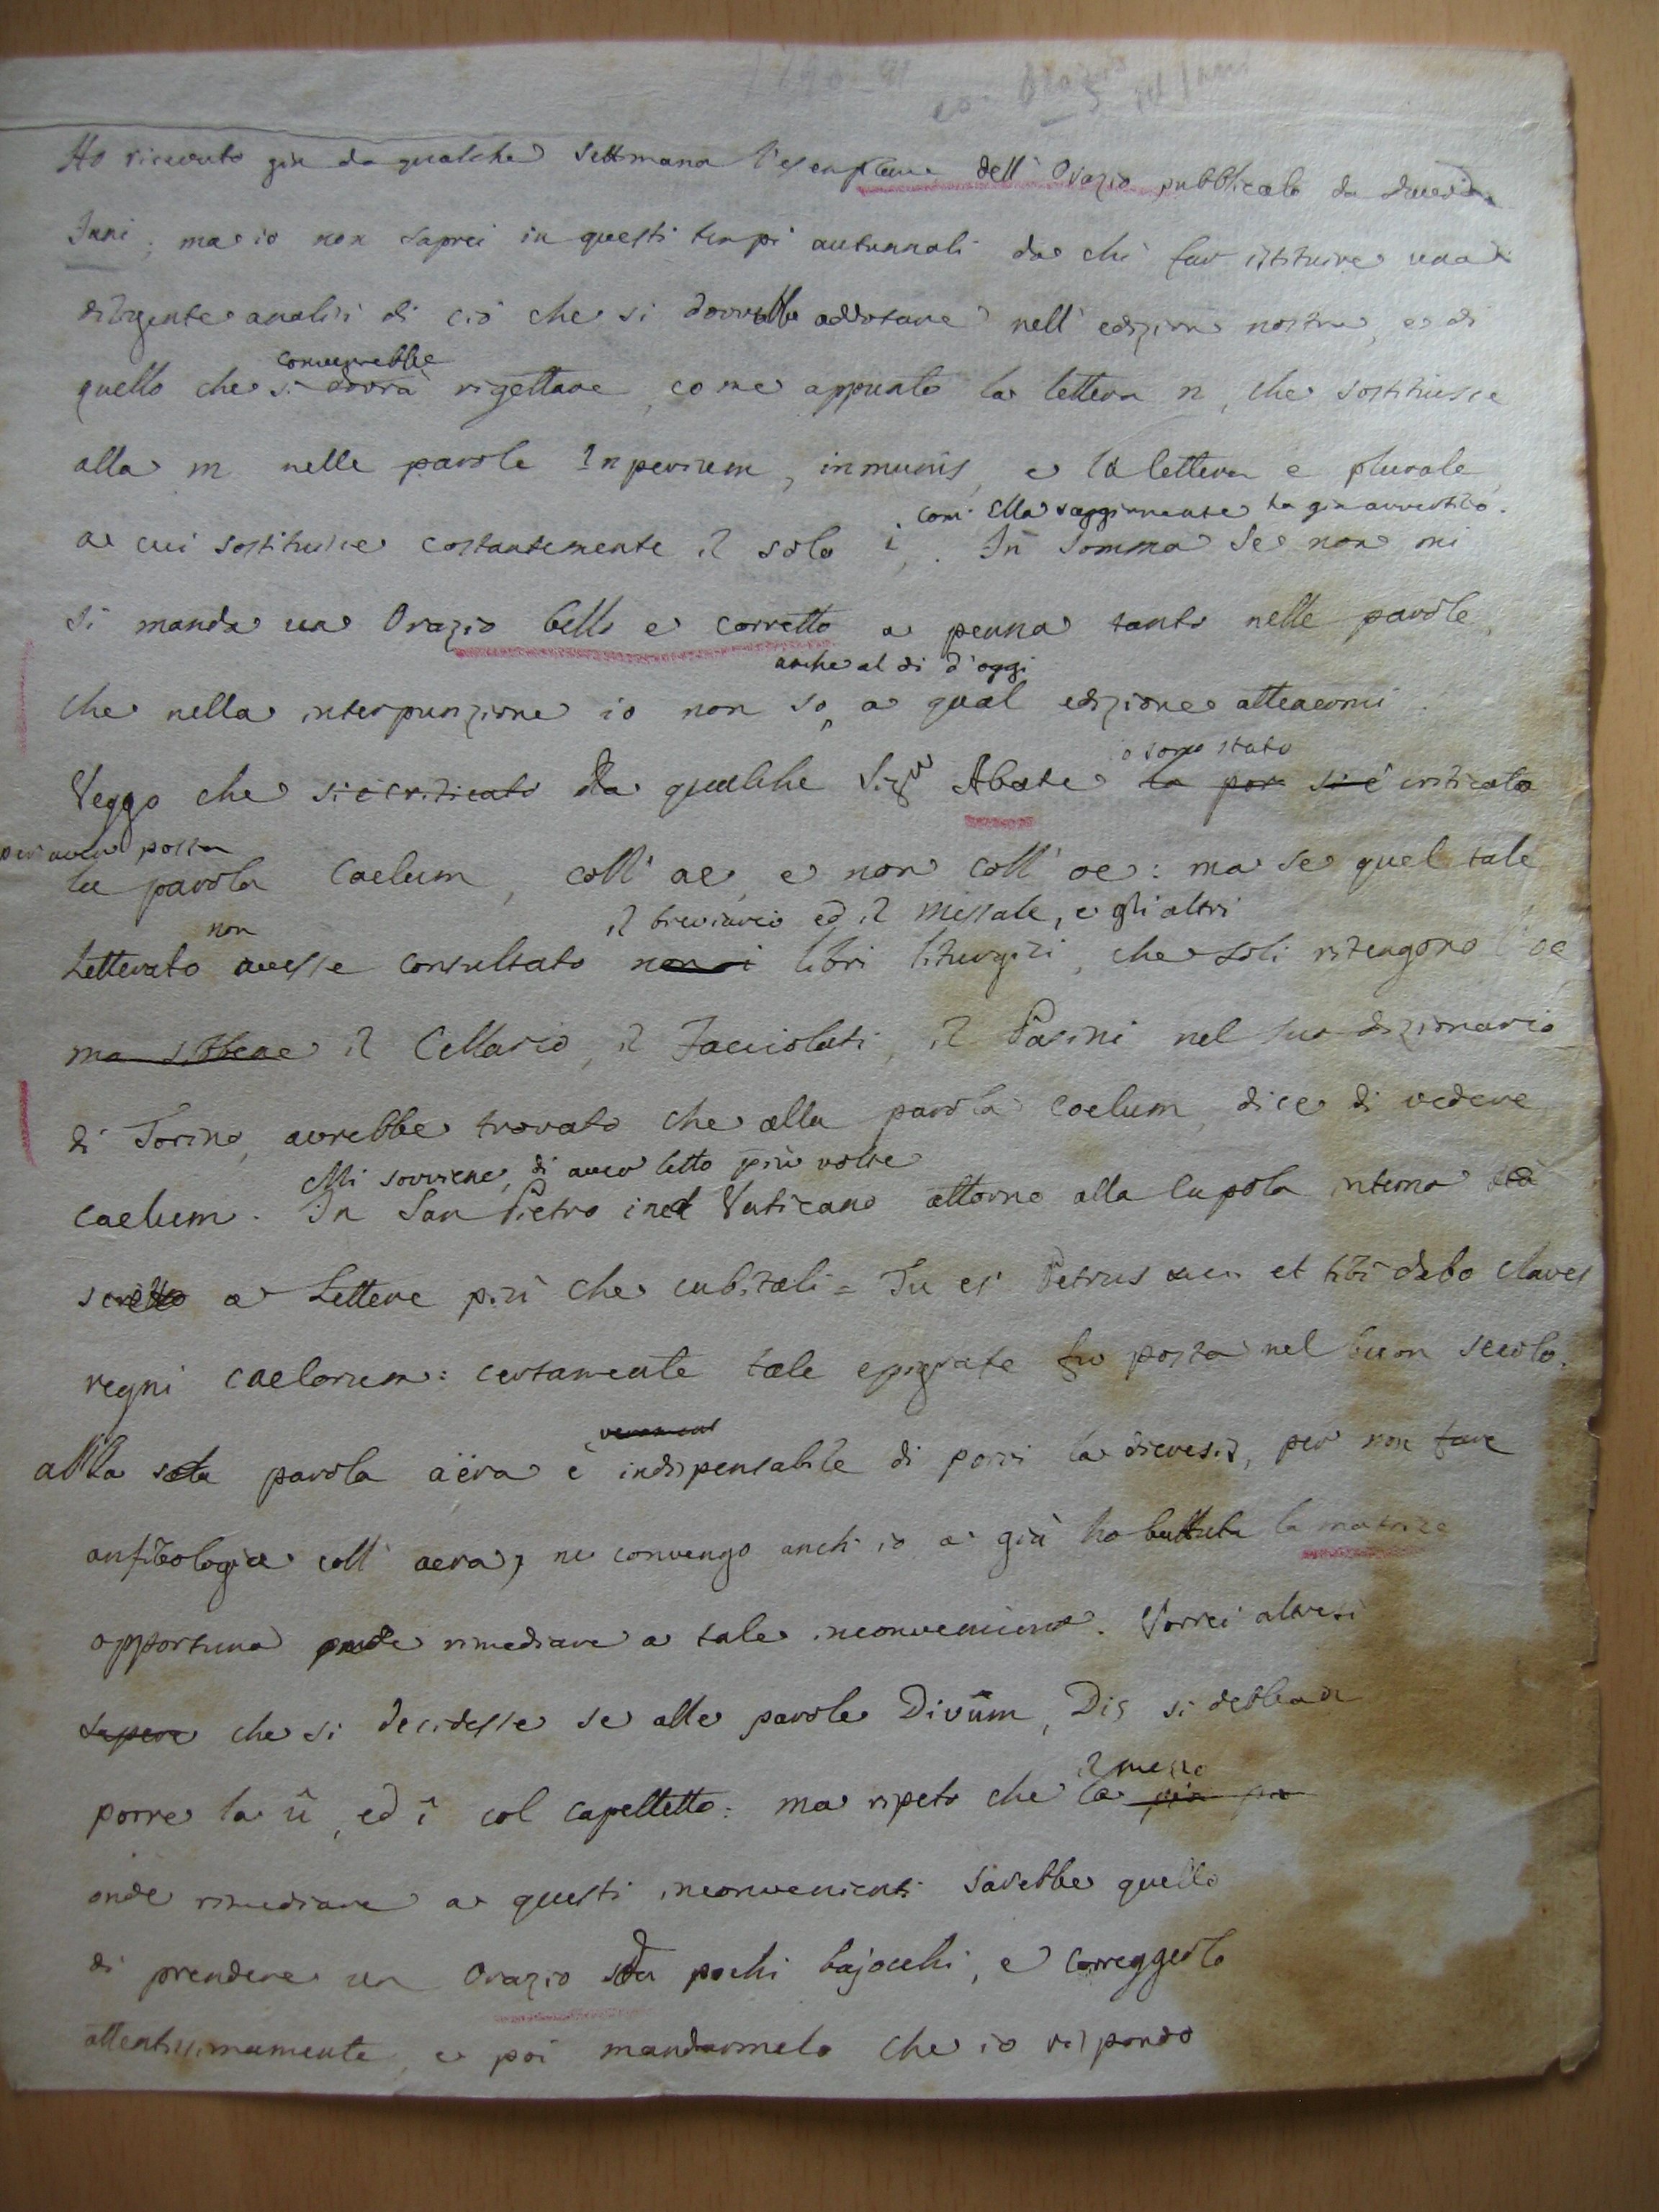 Ho ricevuto già da qualche settimana l'esemplare dell' Orazio pubblicato da
Jani; ma io non saprei in questi tempi autunnali da chi far istituire una
diligente analisi di ciò che si dovrebbe addotare nell' edizione nostra, e di
converrebbe
quello che si dovrà rigettare, come appunto la lettera n, che sostituisce
alla m nelle parole Inperium, inmunis, e la lettera e plurale,
com' Ella saggiamente ha già avvertito.
a cui sostituisce costantemente il solo i,. In somma se non mi
si manda un Orazio bello e corretto a penna tanto nelle parole,
anche al dì d'oggi
che nella interpunzione io non so, a qual edizione attenermi.
o sono stato
Veggo che si è criticato da qualche Sigr Abate la si è criticato
per aver posta
la parola Caelum, coll' ae, e non coll' oe: ma se quel tale
non il breviario ed il Messale, e gli altri
Letterato avesse consultato non i libri liturgici, che soli ritengono l'oe
ma sibbene il Cellario, il Facciolati, il Pasini nel suo dizionario
di Torino, avrebbe trovato che alla parola coelum, dice di vedere
Mi sovviene, di aver letto più volte
caelum. In San Pietro in Vaticano attorno alla Cupola interna sta
scritto a Lettere più che cubitali = Tu es Petrus et tibi dabo claves
regni caelorum: certamente tale epigrafe fu posta nel buon secolo.
alla sola parola aëra è indispensabile di porvi la dieresis, per non fare
anfibologia coll' aera, ne convengo anch' io e già ho battuta la matrice
opportuna onde rimediare a tale inconveniente. Vorrei altresì
sapere che si decidesse se alle parole Divûm, Dis si debba
il mezzo
porre la û, ed î col capelletto: ma ripeto che la
onde rimediare a questi inconvenienti sarebbe quello
di prendere un Orazio da pochi bajocchi, e correggerlo
attentissimamente, e poi mandarmelo che io rispondo